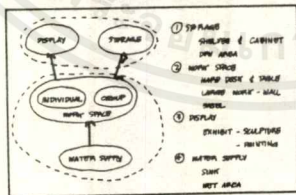 DISPLAY
STORAGE
INDIVIDUAL
GROUP
WORK SPACE
WATER SUPPLY
① STORAGE
SHELVES & CABINET
DRY AREA
② WORK SPACE
HARD DESK & TABLE
LARGE WORK-WALL
③ DISPLAY
EXHIBIT - SCULPTURE
- PAINTING
④ WATER SUPPLY
SINK
WET AREA